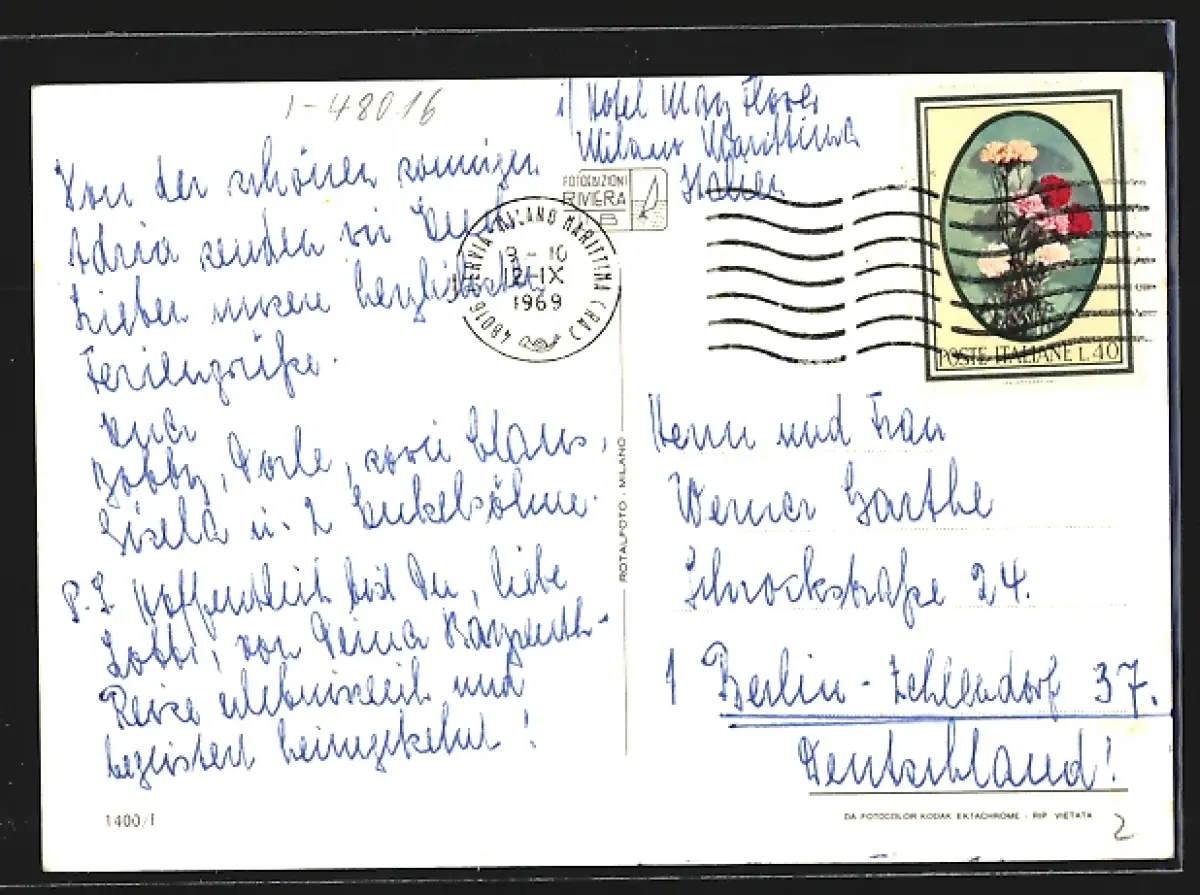 I-48016
z/ Hotel May Flower
Milano Marittima
Italien
Von der schönen sonnigen
Adria senden wir Euch
Lieben unsere herzlichsten
Feriengrüße.
Eure
Bobby, Dorle, sowie Claus,
Gisela u. 2 Enkelsöhne.
P.S. Hoffentlich bist Du, liebe
Lobbi, von Deiner Bayreuth-
Reise erlebnisreich und
begeistert heimgekehrt!
1400/F
FOTOEDIZIONI
RIVIERA
48016 CERVIA MILANO MARITTIMA (RA)
9-10
12-IX
1969
POSTE ITALIANE L.40
ROTALFOTO - MILANO
Herrn und Frau
Werner Garthe
Schrockstraße 24.
1 Berlin-Zehlendorf 37.
Deutschland!
DA FOTOCOLOR KODAK EKTACHROME - RIP. VIETATA
2